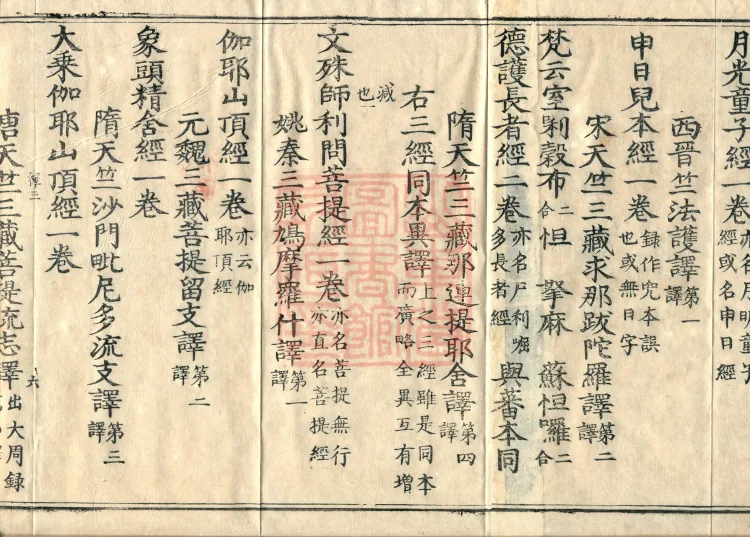 月光童子經一卷亦名月明童子經或名申日經
西晉竺法護譯第一譯
申日兒本經一卷録作兜本誤也或無日字
宋天竺三藏求那跋陀羅譯第二譯
梵云室剚穀布二合怛拏麻蘇怛囉二合
德護長者經二卷亦名尸利崛多長者經與蕃本同
隋天竺三藏那連提耶舍譯第四譯
右三經同本異譯上之三經雖是同本而廣略全異互有增
減也
文殊師利問菩提經一卷亦名菩提無行亦直名菩提經
姚秦三藏鳩摩羅什譯第一譯
伽耶山頂經一卷亦云伽耶頂經
元魏三藏菩提留支譯第二譯
象頭精舍經一卷
隋天竺沙門毗尼多流支譯第三譯
大乘伽耶山頂經一卷
六
唐天竺三藏菩提流志譯出大周録